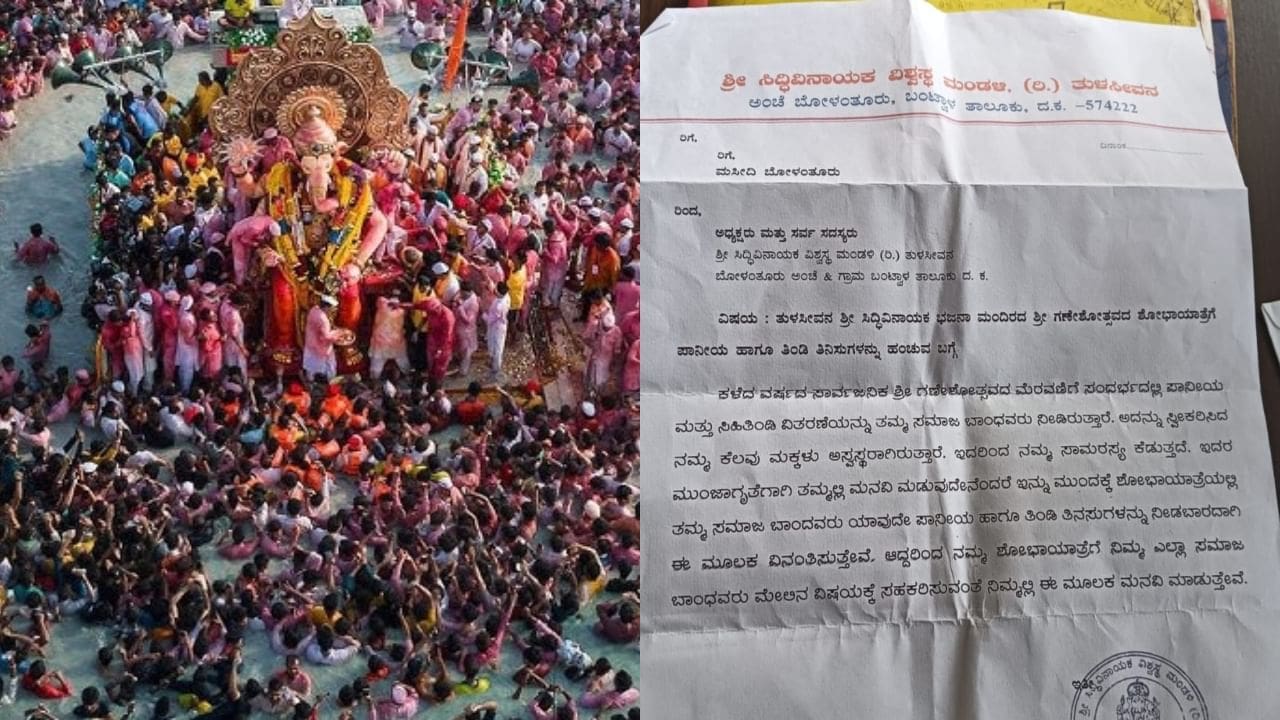 ಶ್ರೀ ಸಿದ್ಧಿವಿನಾಯಕ ವಿಶ್ವಸ್ಥ ಮಂಡಳಿ, (ರಿ.) ತುಳಸೀವನ
ಅಂಚೆ ಬೋಳಂತೂರು, ಬಂಟ್ವಾಳ ತಾಲೂಕು, ದ.ಕ. –574222
ರಿಗೆ,
ದಿನಾಂಕ
ರಿಗೆ,
ಮಸೀದಿ ಬೋಳಂತೂರು
ರಿಂದ,
ಅಧ್ಯಕ್ಷರು ಮತ್ತು ಸರ್ವ ಸದಸ್ಯರು
ಶ್ರೀ ಸಿದ್ಧಿವಿನಾಯಕ ವಿಶ್ವಸ್ಥ ಮಂಡಳಿ (ರಿ.) ತುಳಸೀವನ
ಬೋಳಂತೂರು ಅಂಚೆ & ಗ್ರಾಮ ಬಂಟ್ವಾಳ ತಾಲೂಕು ದ. ಕ.
ವಿಷಯ : ತುಳಸೀವನ ಶ್ರೀ ಸಿದ್ಧಿವಿನಾಯಕ ಭಜನಾ ಮಂದಿರದ ಶ್ರೀ ಗಣೇಶೋತ್ಸವದ ಶೋಭಾಯಾತ್ರೆಗೆ
ಪಾನೀಯ ಹಾಗೂ ತಿಂಡಿ ತಿನಿಸುಗಳನ್ನು ಹಂಚುವ ಬಗ್ಗೆ
ಕಳೆದ ವರ್ಷದ ಸಾರ್ವಜನಿಕ ಶ್ರೀ ಗಣೇಶೋತ್ಸವದ ಮೆರವಣಿಗೆ ಸಂದರ್ಭದಲ್ಲಿ ಪಾನೀಯ
ಮತ್ತು ಸಿಹಿತಿಂಡಿ ವಿತರಣೆಯನ್ನು ತಮ್ಮ ಸಮಾಜ ಬಾಂಧವರು ನೀಡಿರುತ್ತಾರೆ. ಅದನ್ನು ಸ್ವೀಕರಿಸಿದ
ನಮ್ಮ ಕೆಲವು ಮಕ್ಕಳು ಅಸ್ವಸ್ಥರಾಗಿರುತ್ತಾರೆ. ಇದರಿಂದ ನಮ್ಮ ಸಾಮರಸ್ಯ ಕೆಡುತ್ತದೆ. ಇದರ
ಮುಂಜಾಗೃತೆಗಾಗಿ ತಮ್ಮಲ್ಲಿ ಮನವಿ ಮಡುವುದೇನೆಂದರೆ ಇನ್ನು ಮುಂದಕ್ಕೆ ಶೋಭಾಯಾತ್ರೆಯಲ್ಲಿ
ತಮ್ಮ ಸಮಾಜ ಬಾಂದವರು ಯಾವುದೇ ಪಾನೀಯ ಹಾಗೂ ತಿಂಡಿ ತಿನಸುಗಳನ್ನು ನೀಡಬಾರದಾಗಿ
ಈ ಮೂಲಕ ವಿನಂತಿಸುತ್ತೇವೆ. ಆದ್ದರಿಂದ ನಮ್ಮ ಶೋಭಾಯಾತ್ರೆಗೆ ನಿಮ್ಮ ಎಲ್ಲಾ ಸಮಾಜ
ಬಾಂಧವರು ಮೇಲಿನ ವಿಷಯಕ್ಕೆ ಸಹಕರಿಸುವಂತೆ ನಿಮ್ಮಲ್ಲಿ ಈ ಮೂಲಕ ಮನವಿ ಮಾಡುತ್ತೇವೆ.
ಶ್ರೀ ಸಿದ್ಧಿವಿನಾಯಕ ವಿಶ್ವಸ್ಥ ಮಂಡಳಿ